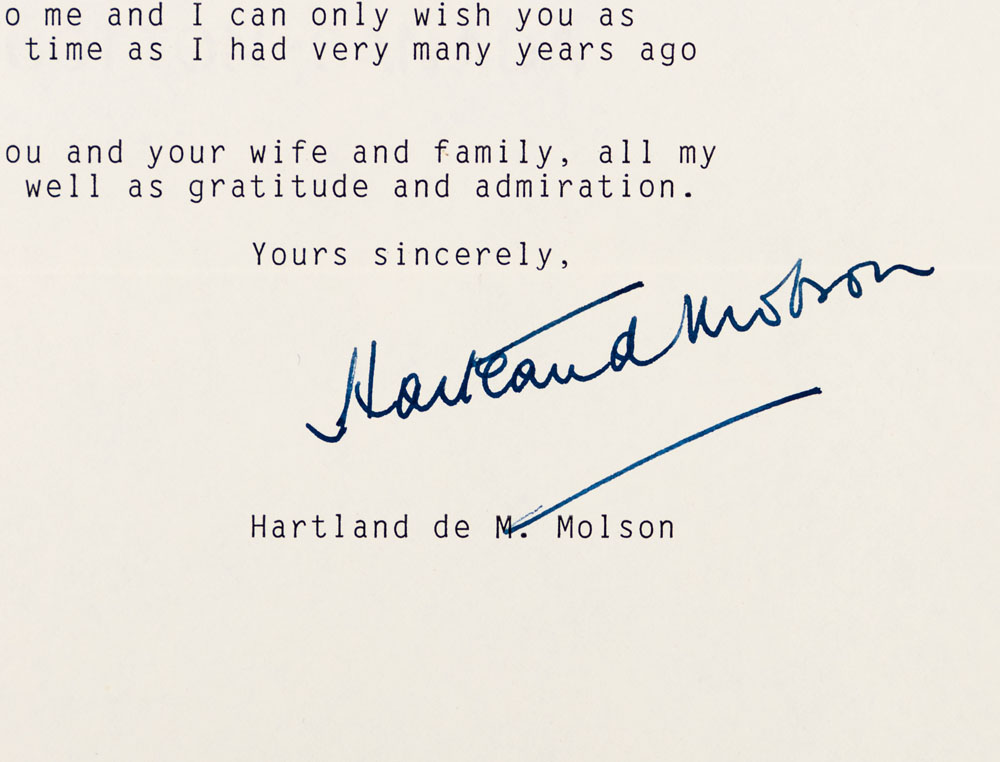 o me and I can only wish you as
time as I had very many years ago
ou and your wife and family, all my
well as gratitude and admiration.
Yours sincerely,
Hartland Molson
Hartland de M. Molson